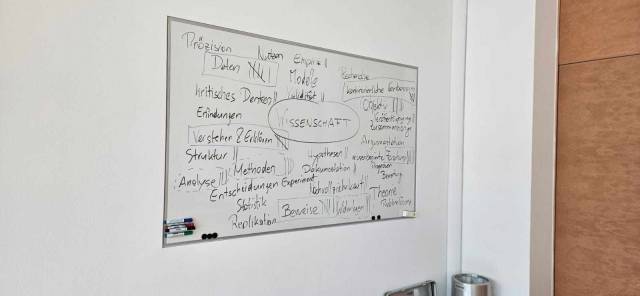 Präzision
Nutzen
Empirie
Daten
Modelle
Recherche
kontinuierliche Verbesserung
kritisches Denken
Validität
Objektiv
Erfindungen
WISSENSCHAFT
Veröffentlichung
Zusammenhänge
Verstehen & Erklären
Argumentation
Struktur
Hypothesen
Methoden
Dokumentation
Analyse
Experiment
Entscheidungen
Nachvollziehbarkeit
Theorie
Statistik
Beweise
Widerlegen
Replikation